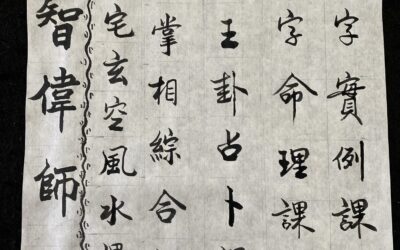 字實例課
字命理課
王卦占卜
掌相綜合
宅玄空風水
智偉師